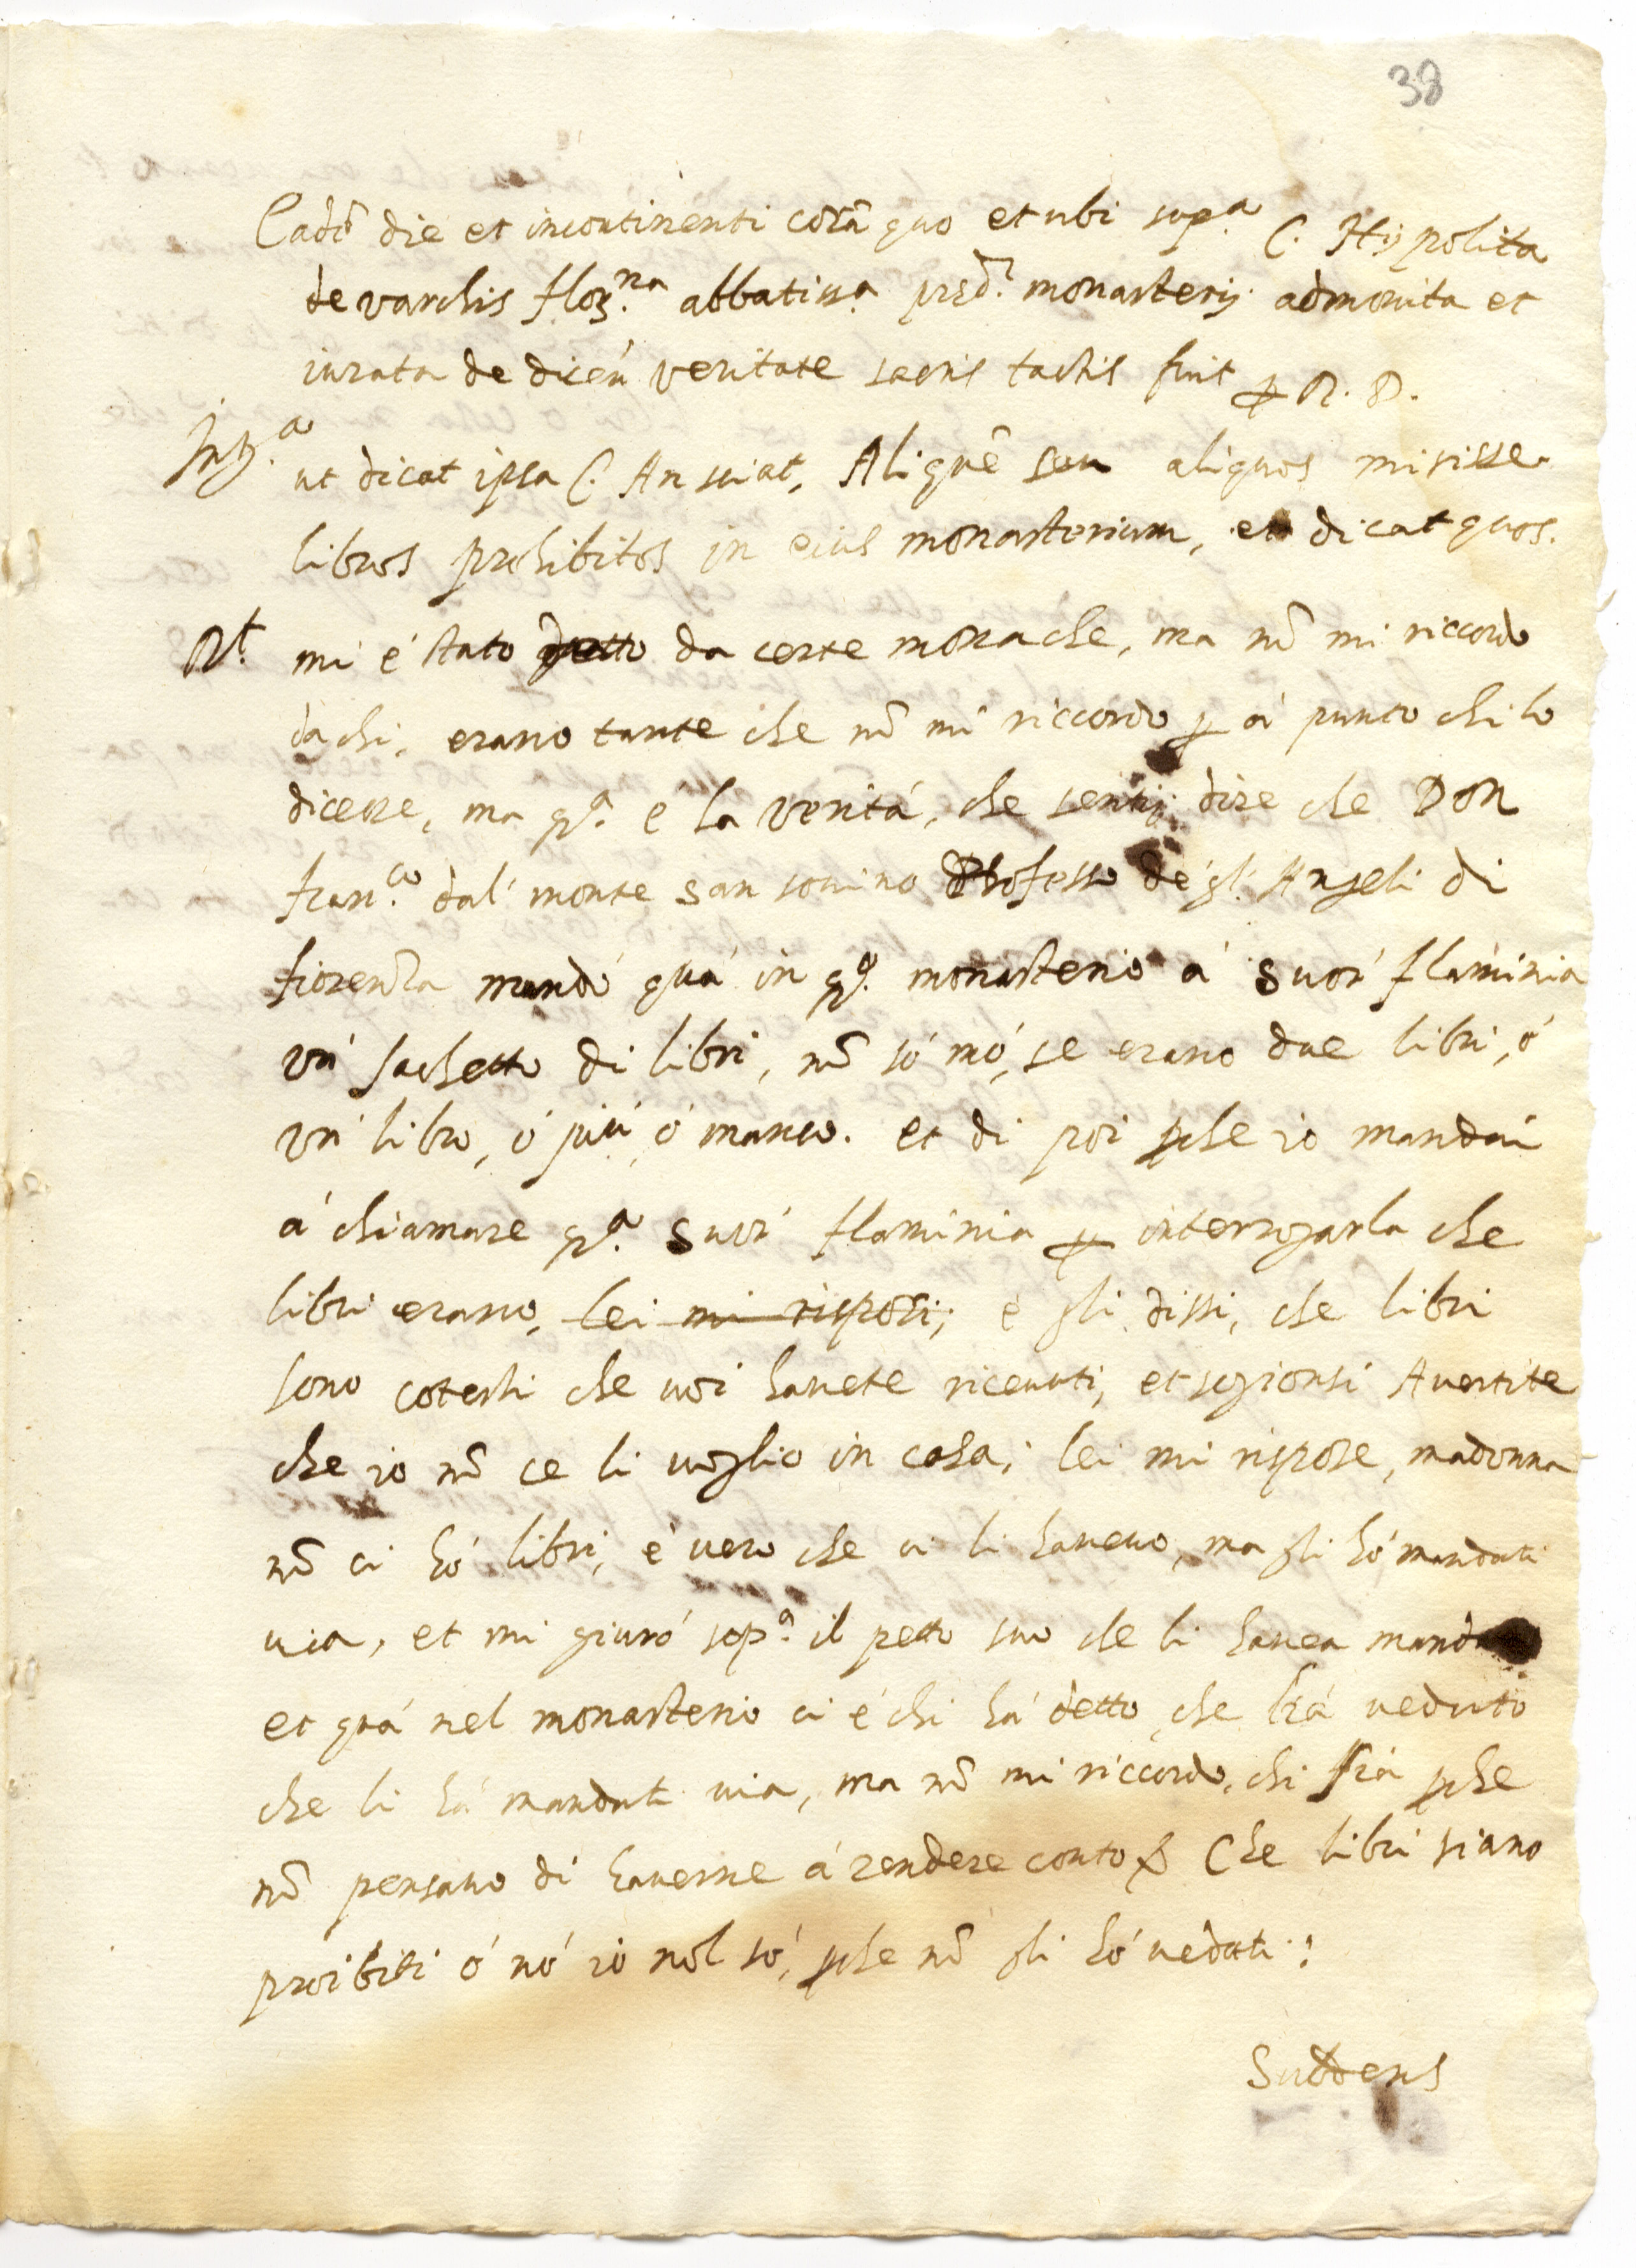 38
Eadē die et incontinenti corā quo et ubi sup.ª C. Hippolita
de varchis flor.na abbatissa pred.i monasterij admonita et
iurata de dicen' veritate sacris tactis fuit p R. D.
Int.ª ut dicat ipsa C. An sciat, Aliquē seu aliquos misisse
libros prohibitos in eius monasterium, et dicat quos.
Rt. mi é stato detto da certe monache, ma nō mi riccordo
da chi, erano tante che nō mi riccordo p á punto chi lo
dicesse, ma q.ª é la veritá, che sentij dire che Don
fran.co dal' monte san sovino Professo de gl' Angeli di
fiorenza mandó quá in q.º monasterio á Suor' flaminia
un' sachetto di libri, nō só mó, se erano due libri, ó
un' libro, ó piú, ó manco. et di poi pche io mandai
á chiamare q.ª Suor' flaminia p interrogarla che
libri erano, lei mi rispose; e gli dissi, che libri
sono cotesti che voi havete ricevuti, et sogionsi Avertite
che io nō ce li voglio in casa; lei mi rispose, madonna
nō ci hó libri, é vero che ci li havevo, ma gli hó mandati
via, et mi giuró sop.ª il petto suo che li havea manda
et quá nel monasterio ci é chi há detto che há veduto
che li há mandati via, ma nō mi riccordo, chi sia pche
nō pensavo di haverne á rendere conto Che libri siano
proibiti ó nó io nol só, pche nō gli hó veduti:
Subdens